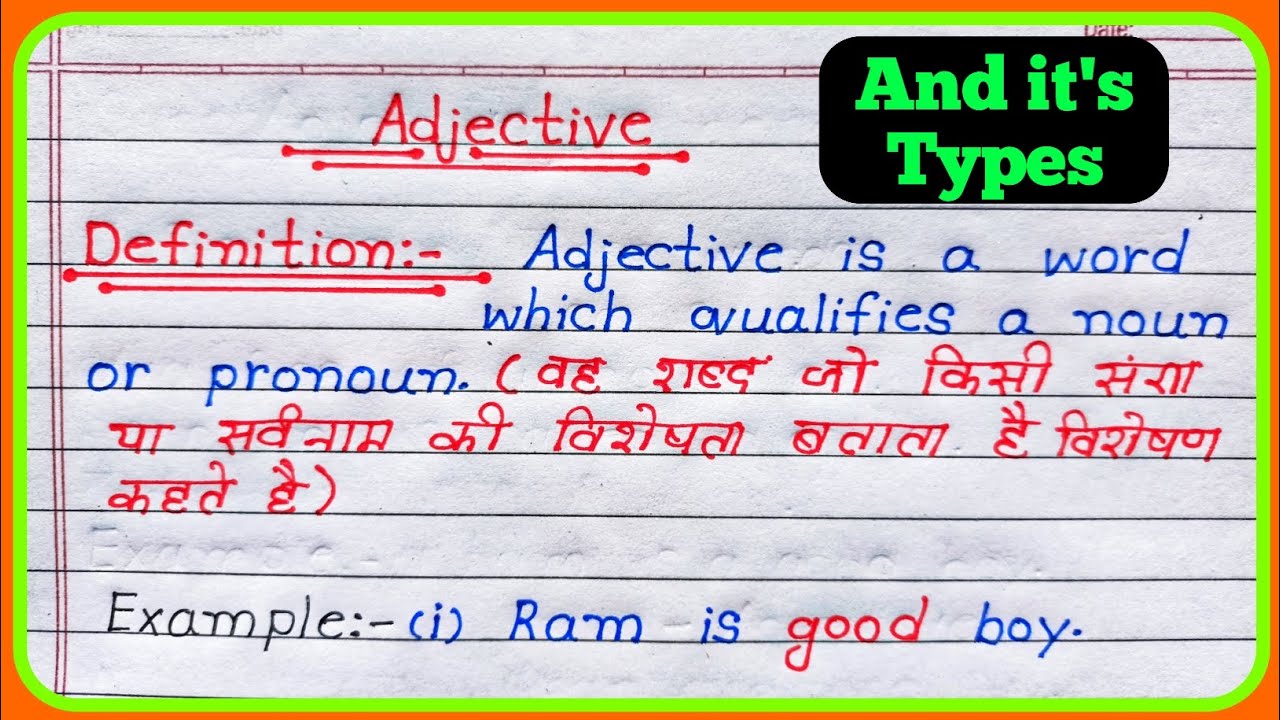 Date:
And it's
Types
Adjective
Definition:- Adjective is a word
which qualifies a noun
or pronoun. (वह शब्द जो किसी संज्ञा
या सर्वनाम की विशेषता बताता है विशेषण
कहते है)
Example:- (i) Ram is good boy.